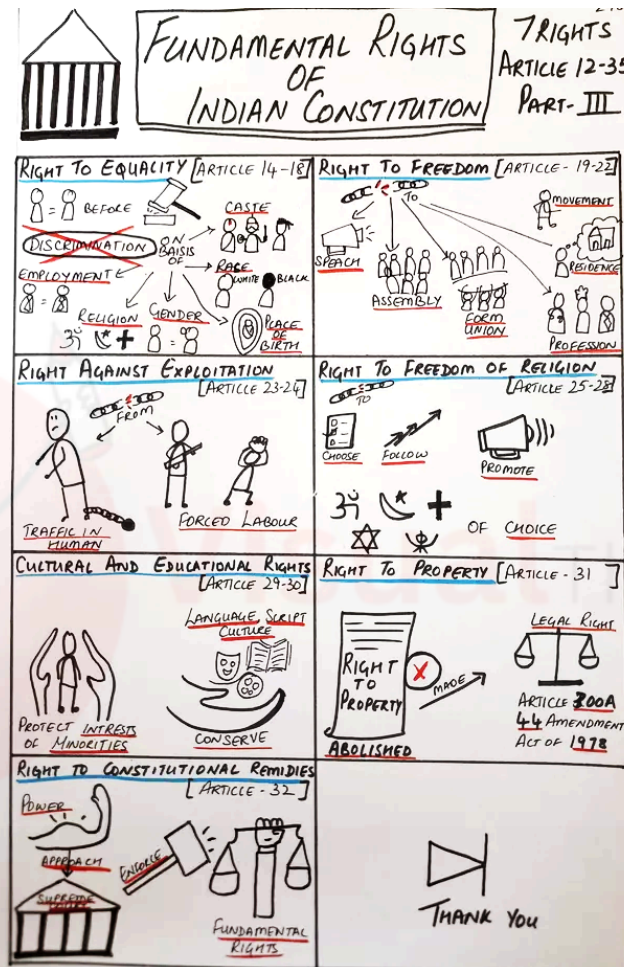 FUNDAMENTAL RIGHTS
OF
INDIAN CONSTITUTION
7 RIGHTS
ARTICLE 12-35
PART-III
RIGHT TO EQUALITY [ARTICLE 14-18]
= BEFORE
DISCRIMINATION
ON
BAISIS
OF
CASTE
RACE
WHITE BLACK
EMPLOYMENT
=
RELIGION
GENDER
ॐ
=
PLACE
OF
BIRTH
RIGHT TO FREEDOM [ARTICLE-19-22]
TO
MOVEMENT
SPEACH
ASSEMBLY
FORM
UNION
RESIDENCE
PROFESSION
RIGHT AGAINST EXPLOITATION
[ARTICLE 23-24]
FROM
TRAFFIC IN
HUMAN
FORCED LABOUR
RIGHT TO FREEDOM OF RELIGION
[ARTICLE 25-28]
TO
CHOOSE
FOLLOW
PROMOTE
ॐ
OF CHOICE
CULTURAL AND EDUCATIONAL RIGHTS
[ARTICLE 29-30]
LANGUAGE, SCRIPT
CULTURE
PROTECT INTRESTS
OF MINORITIES
CONSERVE
RIGHT TO PROPERTY [ARTICLE-31]
RIGHT
TO
PROPERTY
X
MADE
ABOLISHED
LEGAL RIGHT
ARTICLE 300A
44 AMENDMENT
ACT OF 1978
RIGHT TO CONSTITUTIONAL REMIDIES
[ARTICLE-32]
POWER
APPROACH
SUPREME
ENFORCE
FUNDAMENTAL
RIGHTS
THANK YOU
Visual